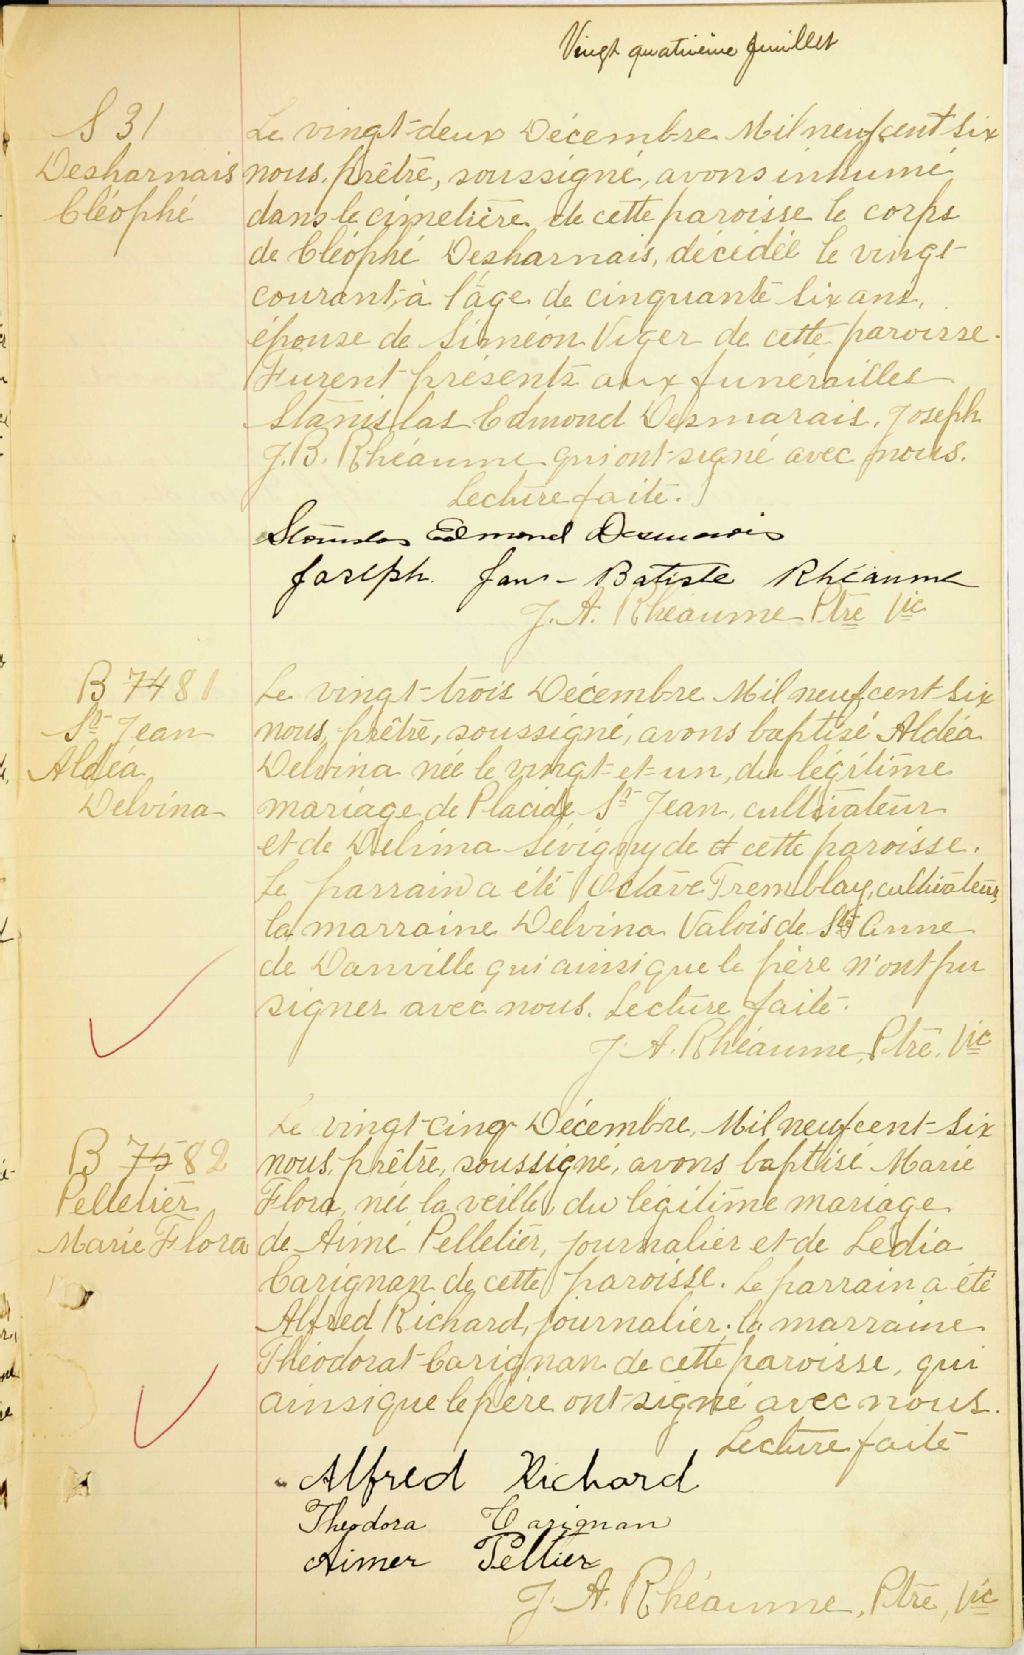 Vingt quatrième feuillet
S 31
Desharnais
Cléophé
Le vingt-deux Décembre Mil neuf cent six
nous, prêtre, soussigné, avons inhumé
dans le cimetière de cette paroisse le corps
de Cléophé Desharnais, décédée le vingt
courant, à l'âge de cinquante six ans,
épouse de Siméon Viger de cette paroisse.
Furent présents aux funérailles
Stanislas Edmond Desmarais, Joseph
J. B. Rhéaume qui ont signé avec nous.
Lecture faite.
Stanislas Edmond Desmarais
Joseph Jean-Batiste Rhéaume
J. A. Rhéaume Ptre Vic
B 74 81
St Jean
Aldéa
Delvina
Le vingt-trois Décembre Mil neuf cent six
nous, prêtre, soussigné, avons baptisé Aldéa
Delvina née le vingt-et-un, du légitime
mariage de Placide St Jean, cultivateur
et de Delima Sévigny de cette paroisse.
Le parrain a été Octave Tremblay, cultivateur,
la marraine Delvina Valois de Ste Anne
de Danville qui ainsi que le père n'ont pu
signer avec nous. Lecture faite.
J. A. Rhéaume, Ptre. Vic
B 75 82
Pelletier
Marie Flora
Le vingt-cinq Décembre, Mil neuf cent-six
nous, prêtre, soussigné, avons baptisé Marie
Flora, née la veille, du légitime mariage
de Aimé Pelletier, journalier et de Ledia
Carignan de cette paroisse. Le parrain a été
Alfred Richard, journalier. la marraine
Théodorat Carignan de cette paroisse, qui
ainsi que le père ont signé avec nous.
Lecture faite
Alfred Richard
Theodora Carignan
Aimer Peltier
J. A. Rhéaume, Ptre, Vic